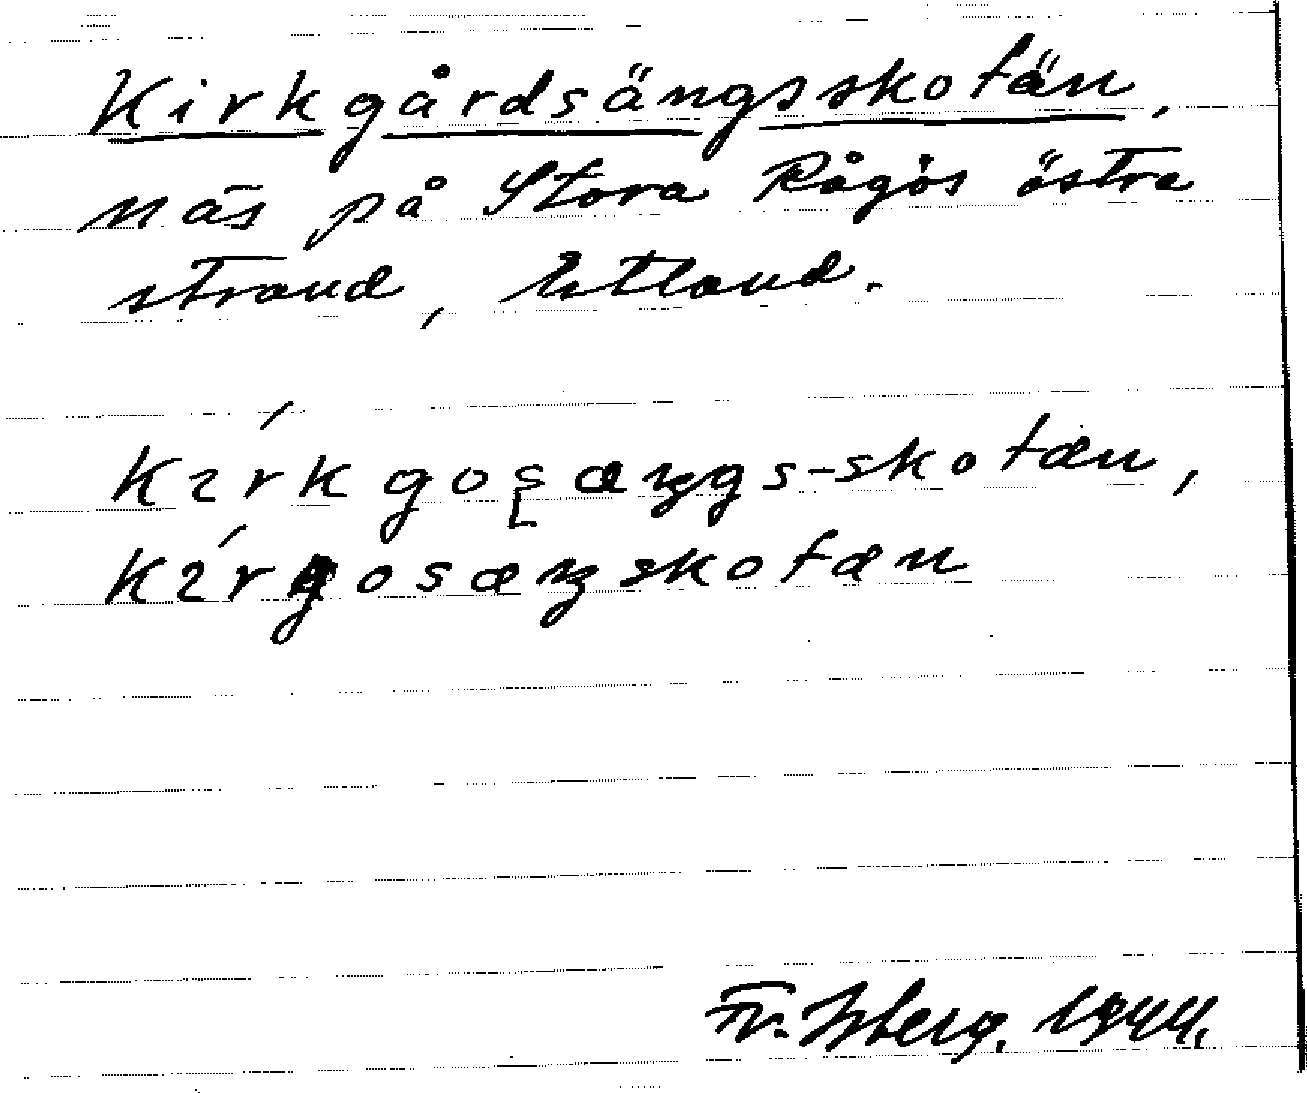 Kirkgårdsängsskotän,
näs på Stora Rågös östra
strand, Estland.
Kɪŕkgosæŋgs-skotæn,
Kɪŕgosæŋskotæn
Fr. Isberg. 1944.